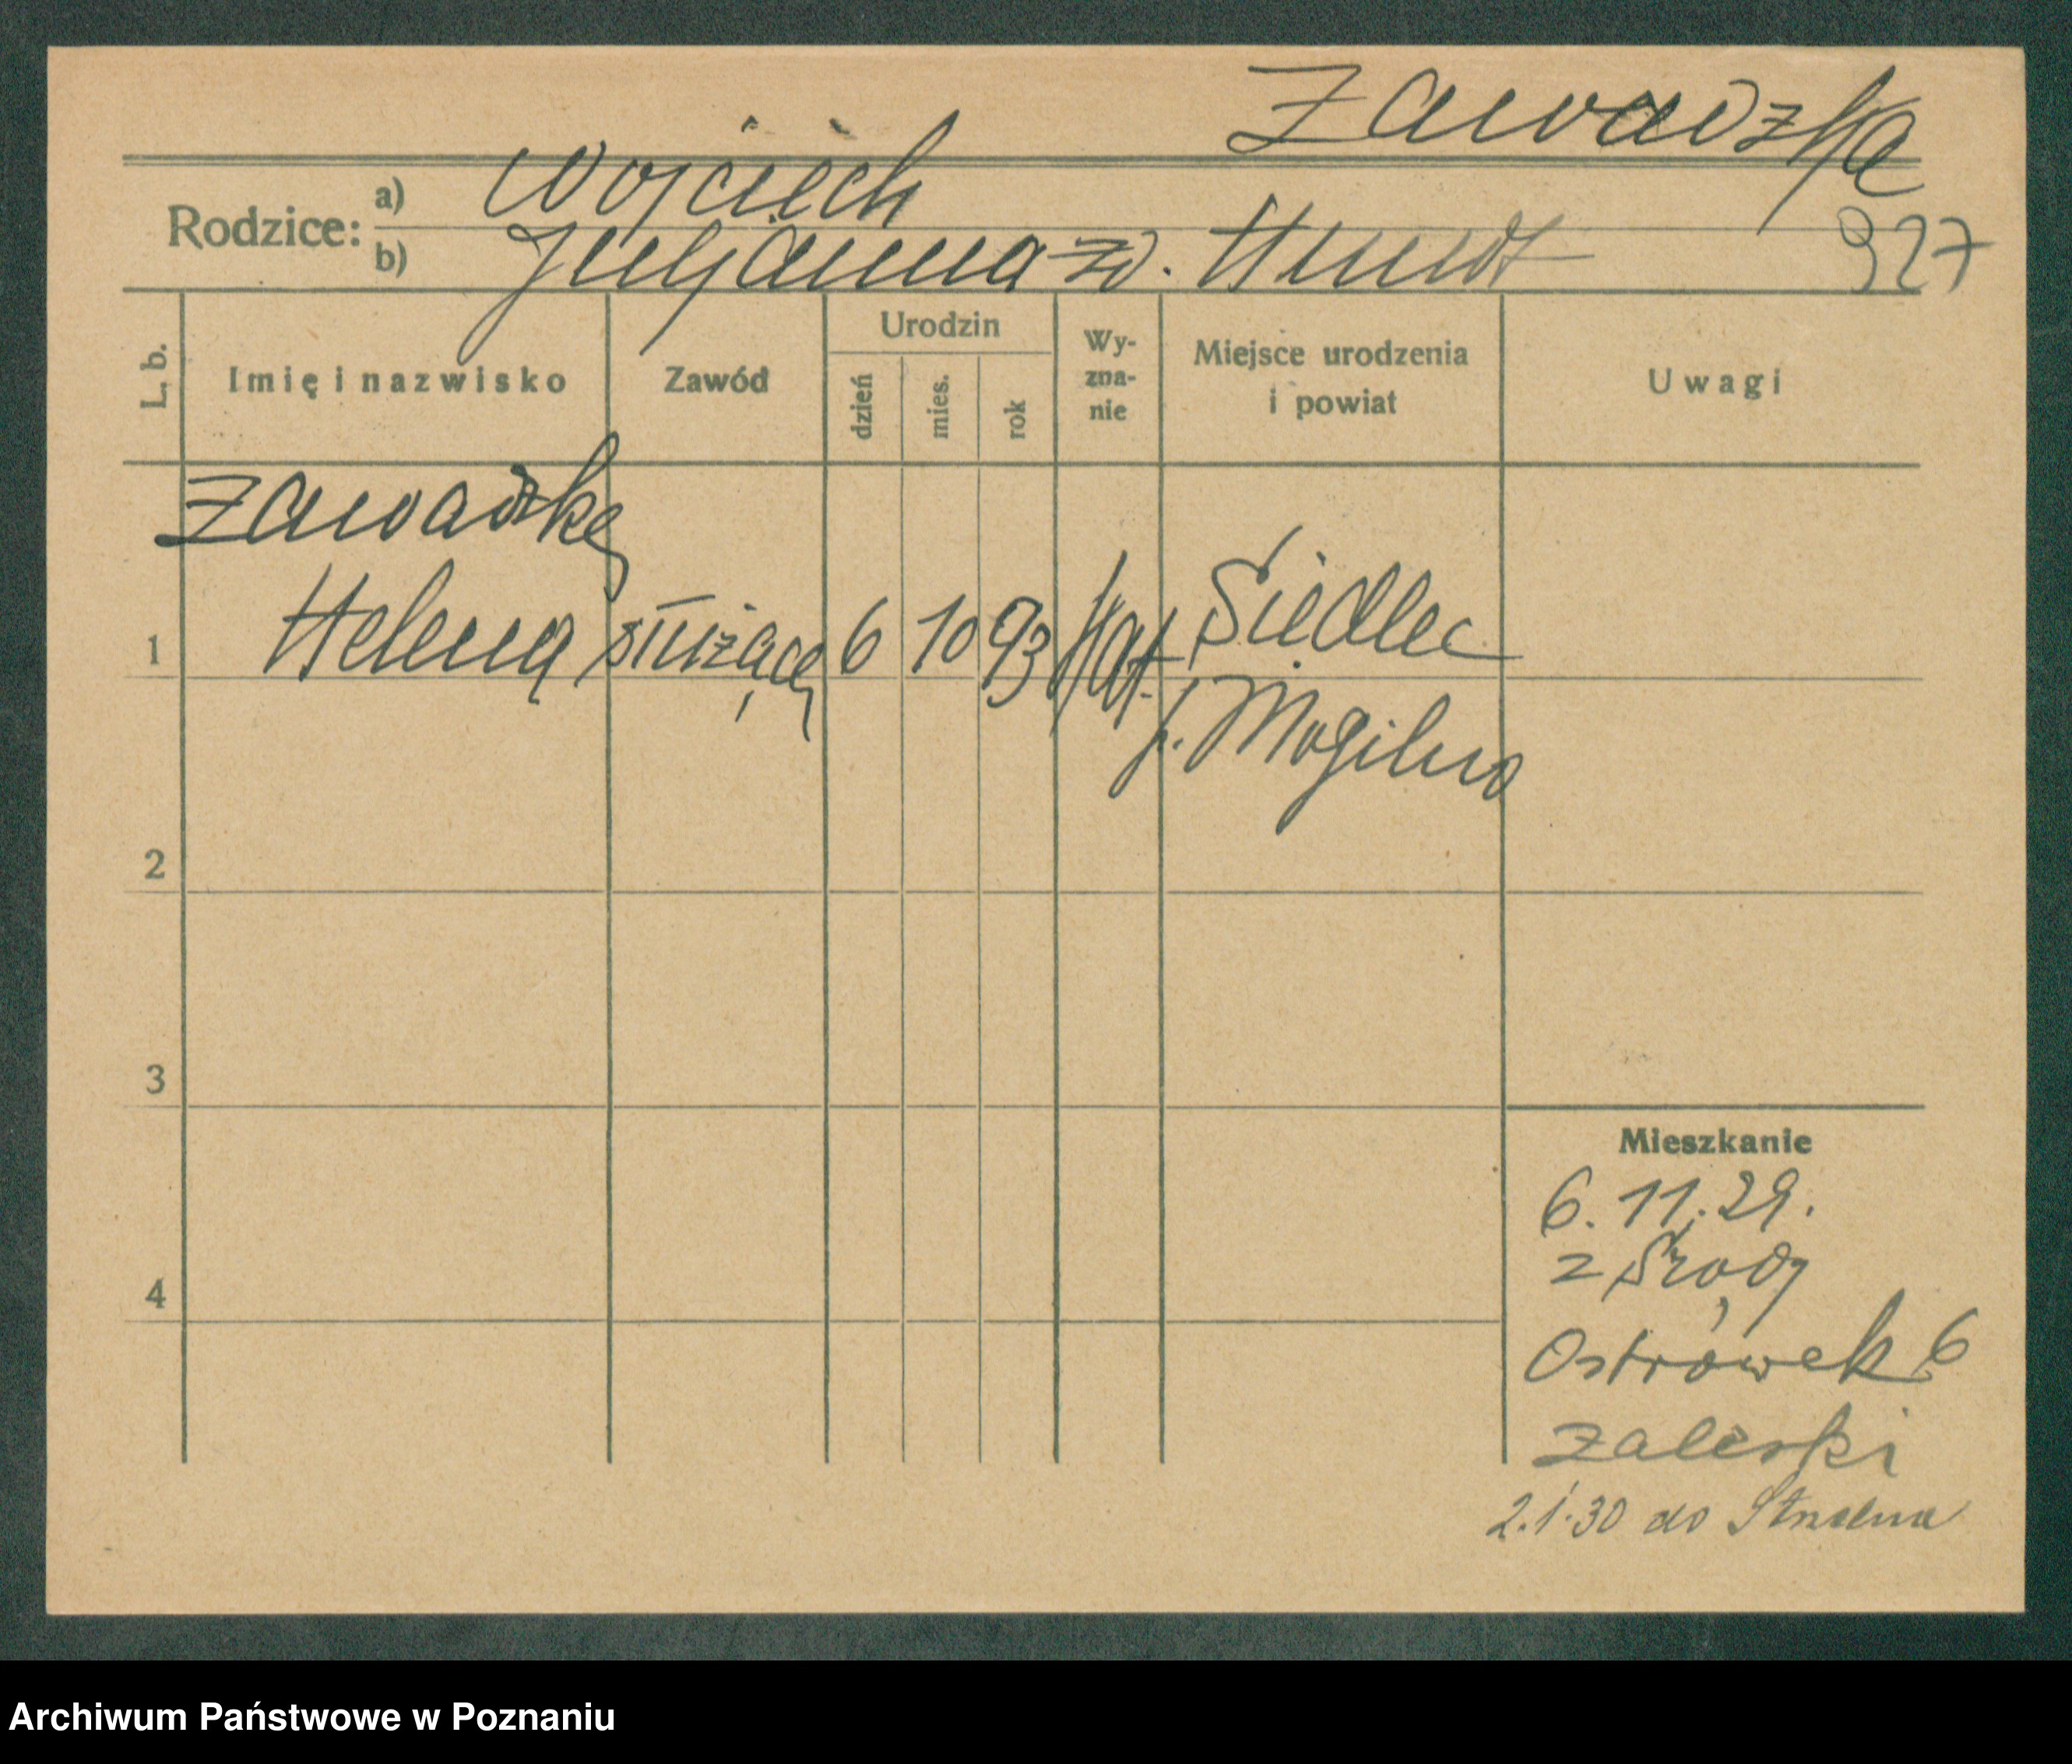 Zawadzka
Rodzice: a) Wojciech
b) Julijanna z d. Hundt
927
L. b.
Imię i nazwisko
Zawód
Urodzin
dzień
mies.
rok
Wy-
zna-
nie
Miejsce urodzenia
i powiat
Uwagi
Zawadzka
1 Helena służąca 6 10 93 kat. Siedlec
p. Mogilno
2
3
4
Mieszkanie
6. 11. 29.
z Środy
Ostrówek 6
Zaleski
2.1.30 do
Archiwum Państwowe w Poznaniu